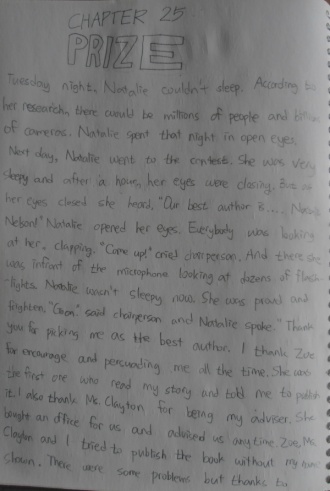 CHAPTER 25
PRIZE
Tuesday night, Natalie couldn't sleep. According to
her research, there would be millions of people and billions
of cameras. Natalie spent that night in open eyes.
Next day, Natalie went to the contest. She was very
sleepy and after a hour, her eyes were closing. But as
her eyes closed she heard, "Our best author is..... Natalie
Nelson!" Natalie opened her eyes. Everybody was looking
at her, clapping. "Come up!" cried chairperson. And there she
was infront of the microphone looking at dozens of flash
-lights. Natalie wasn't sleepy now. She was proud and
frighten. said chairperson and Natalie spoke. "Thank
you for picking me as the best author. I thank Zoe
for encourage and persuading me all the time. She was
the first one who read my story and told me to publish
it. I also thank Ms. Clayton for being my adviser. She
bought an office for us, and advised us any time. Zoe, Ms.
Clayton and I tried to publish the book without my name
shown. There were some problems but thanks to